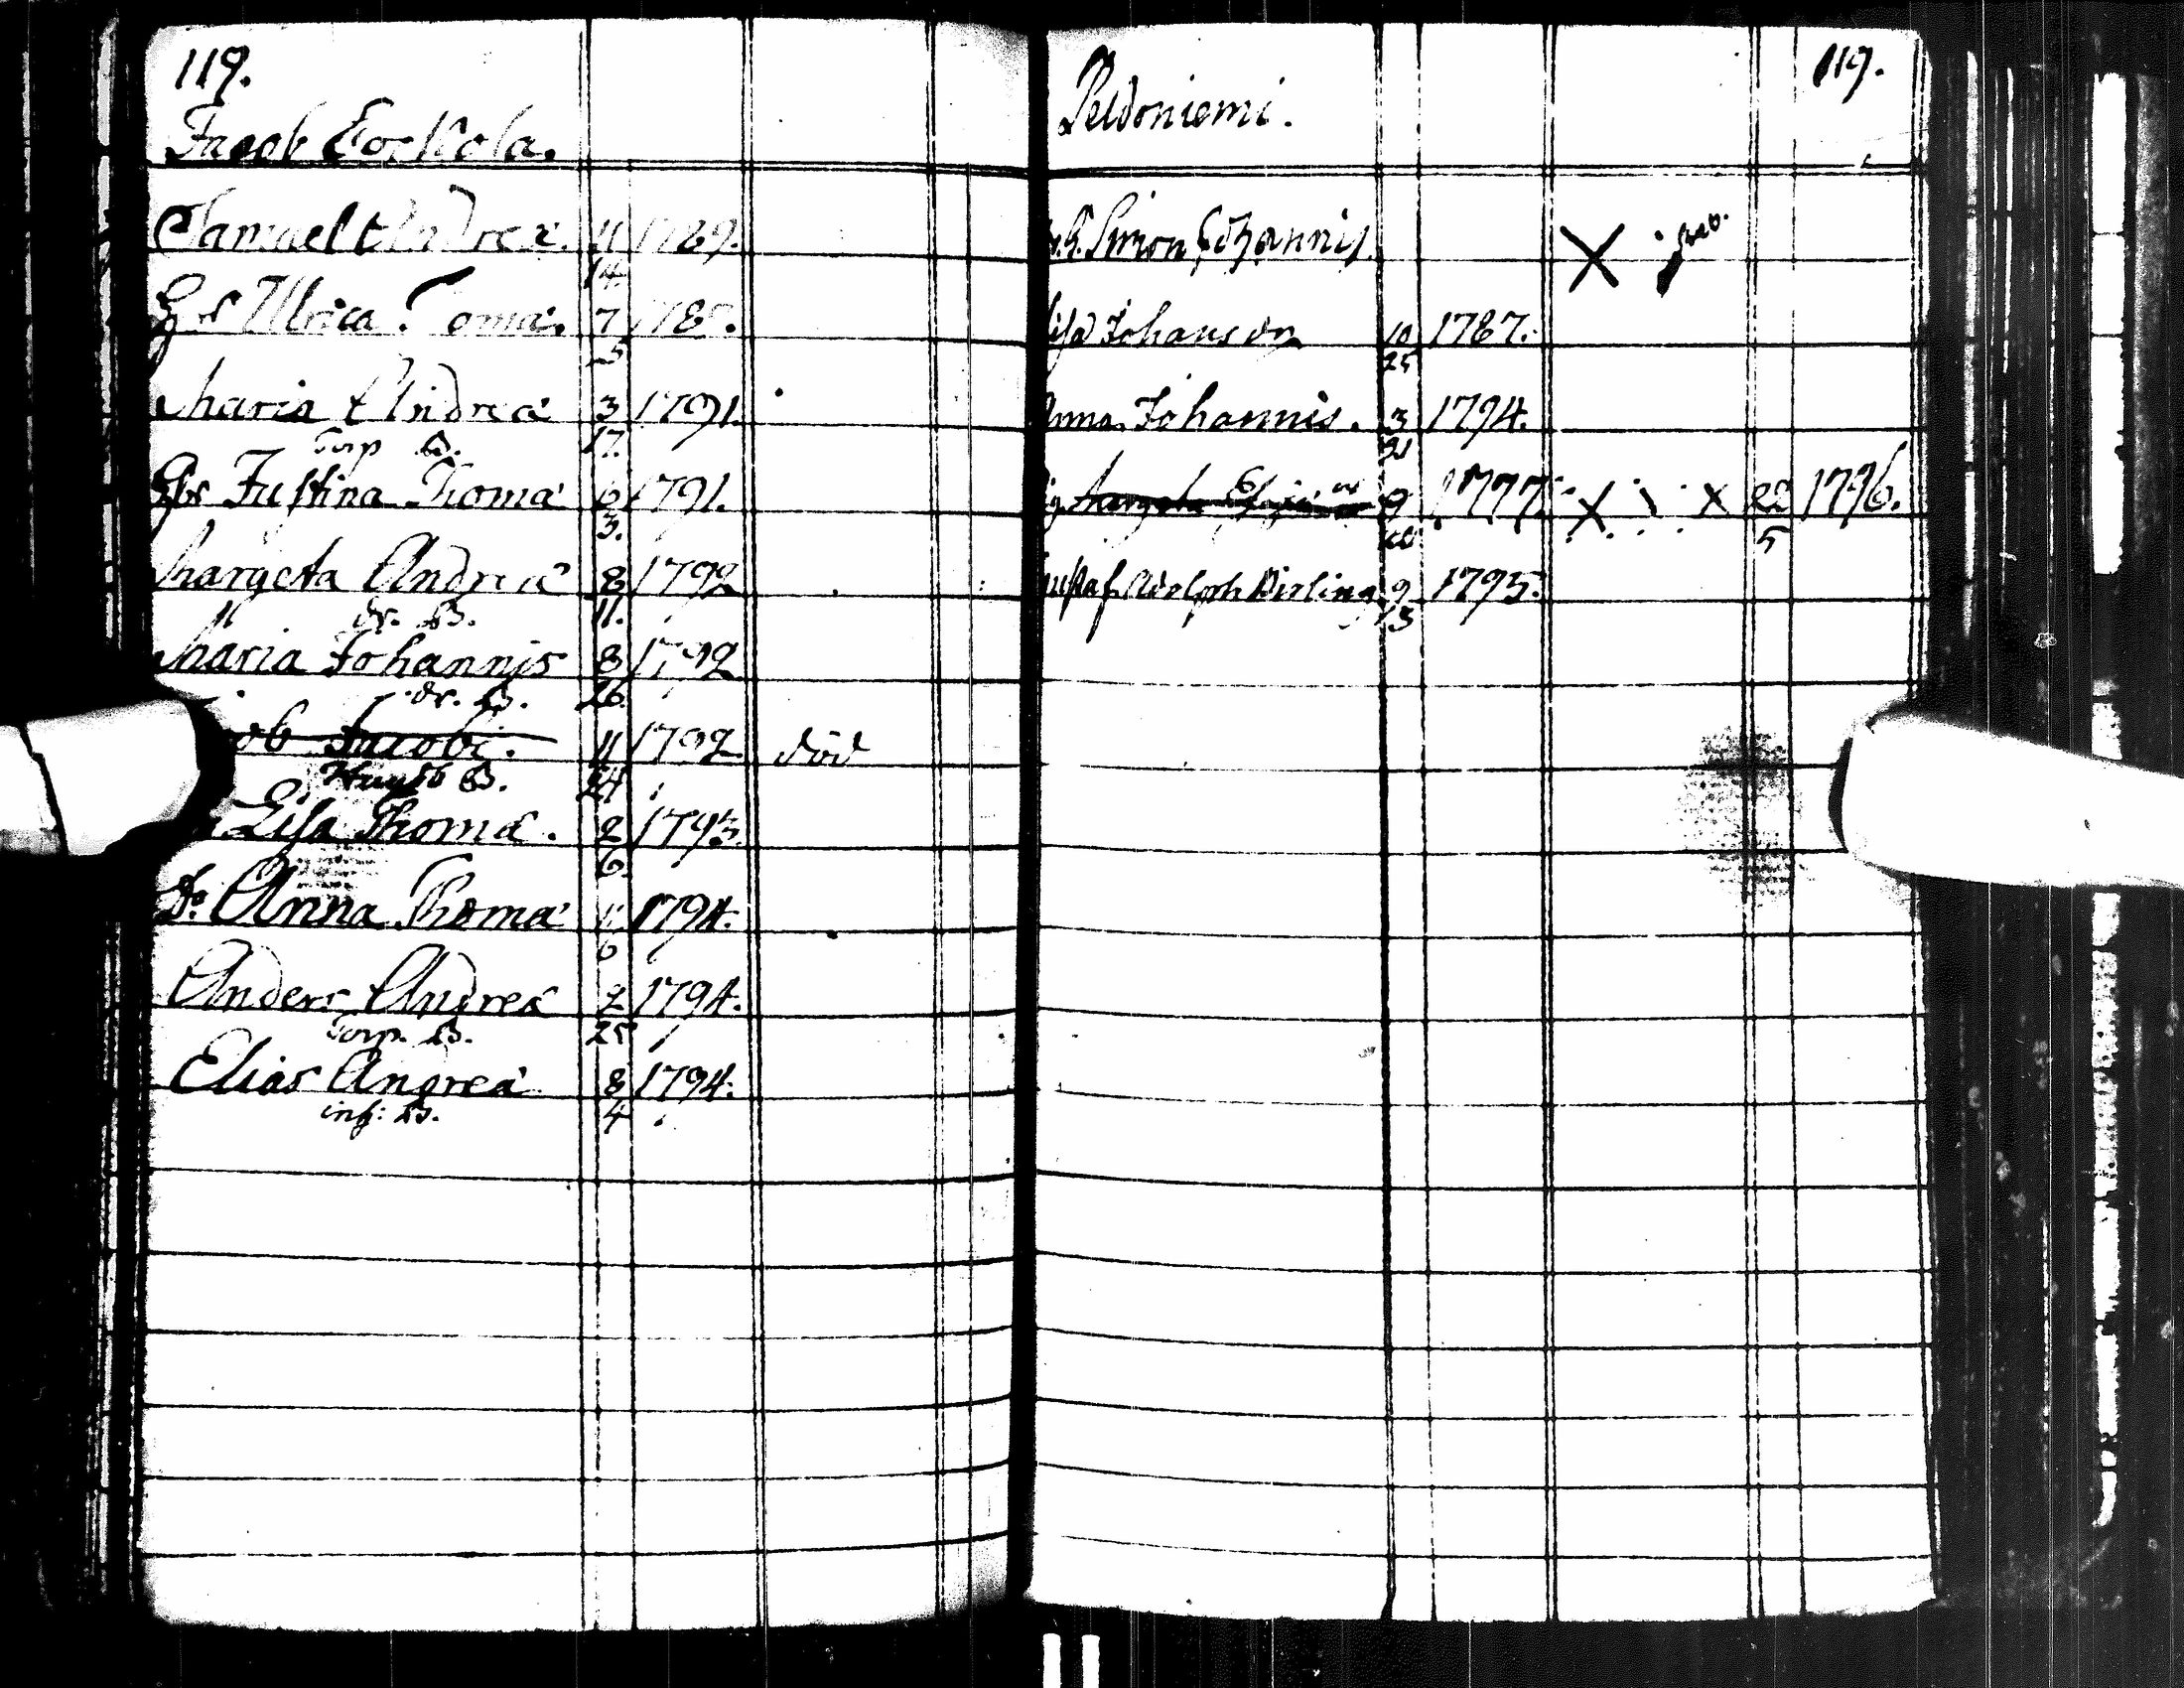 119.
Jacob Eockola.
Samuel Andreæ. 11 1789.
14.
Ulrica Tomæ. 7 178
25
Maria Andreæ 3 1791.
Torp B. 17.
Gfr Justina Thomæ 6 1791.
3.
Margeta Andreæ 8 1792
dr. B. 11.
Maria Johannis 8 1792
dr. B. 26.
ob Jacobi. 11 1792 död
B. 24
Lisa Thomæ. 2 1793.
6.
Do Anna Thomæ 1794.
6
Anders Andreæ 2 1794.
Torp. B. 25
Elias Andreæ 8 1794.
inh: B. 4
119.
Peldoniemi.
Simon Johannis. X
Johans dr 10 1787.
25
Anna Johannis. 3 1794.
21
9 1777. X X 22 1796.
5
ustaf Adolph Dirling 9 1795.
13